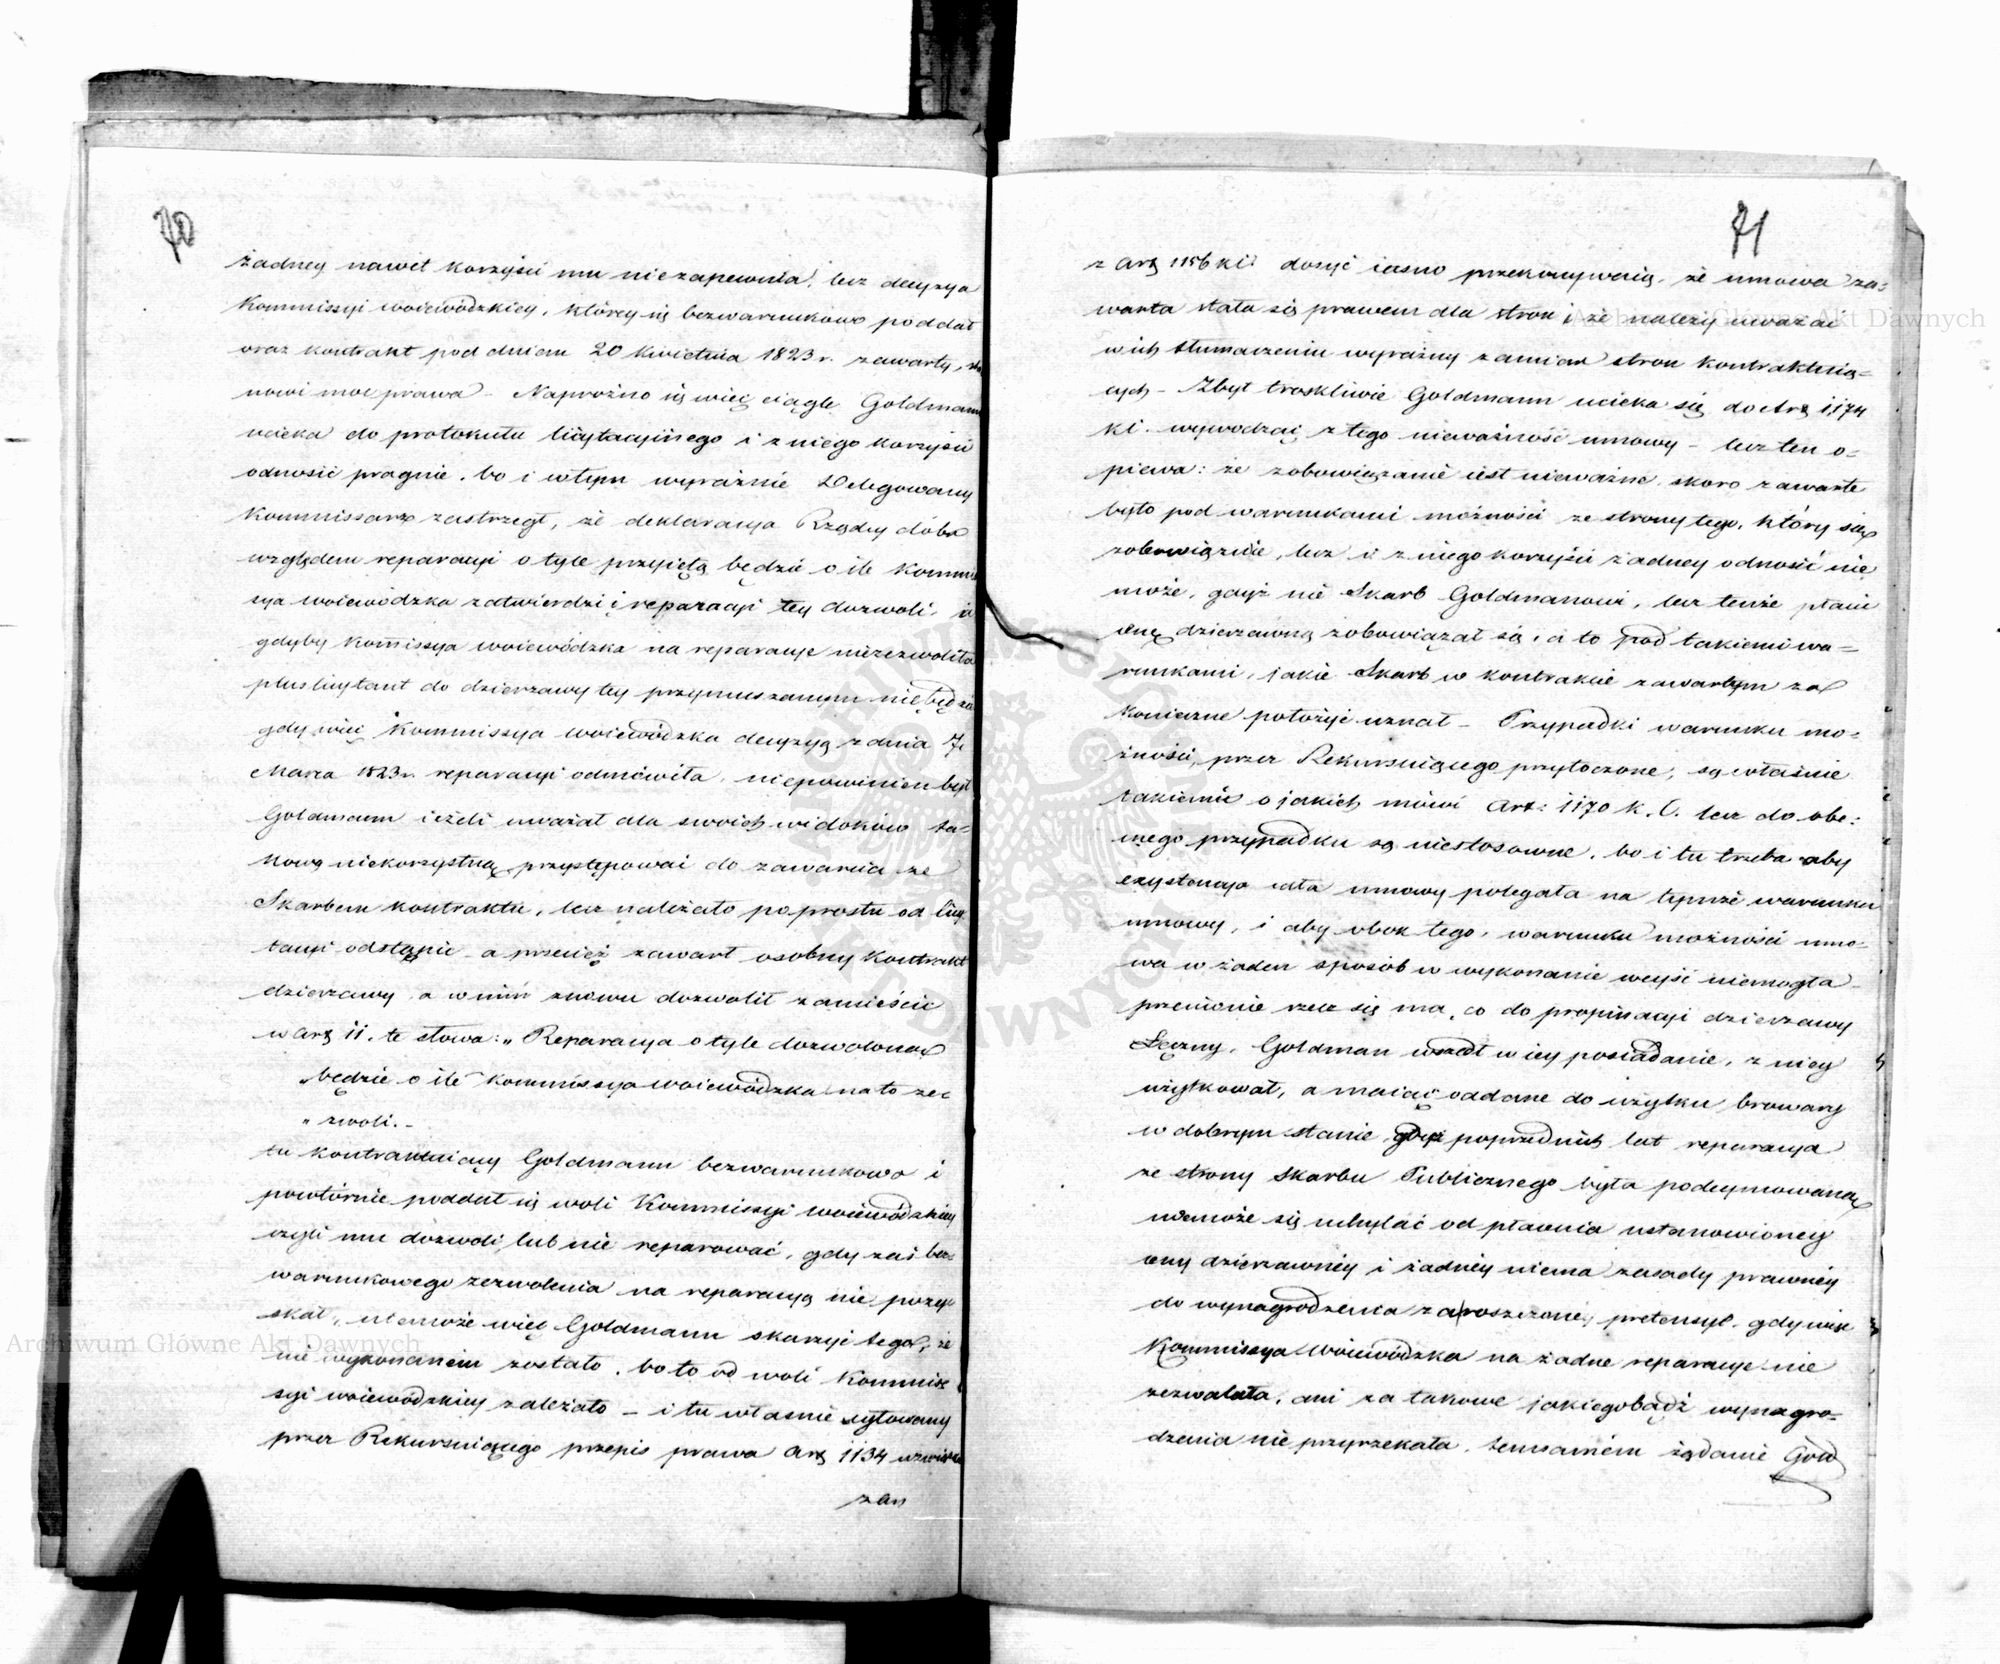 70
żadney nawet korzyści mu niezapewnia, lecz decyzya
Kommissyi woiewódzkiey, którey się bezwarunkowo poddał
oraz kontrakt pod dniem 20 Kwietnia 1823 r. zawarty, sta
nowi moc prawa – Naprożno się więc ciągle Goldmann
ucieka do protokułu licytacyinego i z niego korzyści
odnosić pragnie, bo i w tym wyraźnie Delegowany
Kommissarz zastrzegł, że deklaracya Rządcy dóbr
względem reparacyi o tyle przyiętą będzie o ile Kommis
sya woiewódzka zatwierdzi i reparacyi tey dozwoli, a
gdyby Kommissya woiewódzka na reparacye niezezwoliła
pluslicytant do dzierzawy tey przymuszanym niebędzie
gdy więc Kommissya woiewódzka decyzyą z dnia 7.
Marca 1823 r. reparacyi odmówiła, niepowinien był
Goldmann ieżeli uważał dla swoich widoków ta=
kową niekorzystną, przystępować do zawarcia ze
Skarbem kontraktu, lecz należało poprostu od licy
tacyi odstąpić – a przecież zawarł osobny kontrakt
dzierzawy, a w nim znowu dozwolił zamieścić
w Art 11. te słowa: „Reparacya o tyle dozwoloną
„będzie o ile Kommissya woiewódzka na to ze=
„zwoli. –
tu kontraktuiący Goldmann bezwarunkowo i
powtórnie poddał się woli Kommissyi woiewódzkiey
czyli mu dozwoli, lub nie reparować, gdy zaś bez=
warunkowego zezwolenia na reparacyą nie pozy=
skał, niemoże więc Goldmann skarżyć tego, że
nie wykonanem zostało, bo to od woli Kommis
syi woiewódzkiey zależało – i tu właśnie cytowany
przez Rekursuiącego przepis prawa Art 1134 w związku
z Art
71
z Art 1156 kc. dosyć iasno przekonywaią, że umowa za=
warta stała się prawem dla stron i że należy uważać
w ich tłumaczeniu wyraźny zamiar stron kontraktuią=
cych – Zbyt troskliwie Goldmann ucieka się do Art 1174
kc. wywodząc z tego nieważność umowy – lecz ten o=
piewa: że zobowiązanie iest nieważne skoro zawarte
było pod warunkami możności ze strony tego, który się
zobowiązuie, lecz i z niego korzyści żadney odnosić nie
może, gdyż nie Skarb Goldmanowi, lecz tenże płacić
cenę dzierzawną zobowiązał się, a to pod takiemi wa=
runkami, jakie Skarb w kontrakcie zawartym za
konieczne położyć uznał – Przypadki warunku mo=
żności, przez Rekursuiącego przytoczone, są właśnie
takiemi o jakich mówi Art: 1170 k. C. lecz do obe=
cnego przypadku są niestosowne, bo i tu trzeba aby
exystencya cała umowy polegała na tymże warunku
umowy, i aby obok tego, warunku możności umo=
wa w żaden sposób w wykonanie weyść niemogła –
przeciwnie rzecz się ma, co do propinacyi dzierzawy
Łęczny, Goldman wszedł w iey posiadanie, z niey
użytkował, a maiąc oddane do użytku browary
w dobrym stanie, gdyż poprzednich lat reparacya
ze strony Skarbu Publicznego była podeymowaną
niemoże się uchylać od płacenia ustanowioney
ceny dzierzawney i żadney niema zasady prawney
do wynagrodzenia zaroszczoney pretensyi, gdy więc
Kommissya Woiewódzka na żadne reparacye nie
zezwalała, ani za takowe jakiegobądź wynagro=
dzenia nie przyrzekała, temsamem żądanie Gold
Archiwum Główne Akt Dawnych
Archiwum Główne Akt Dawnych